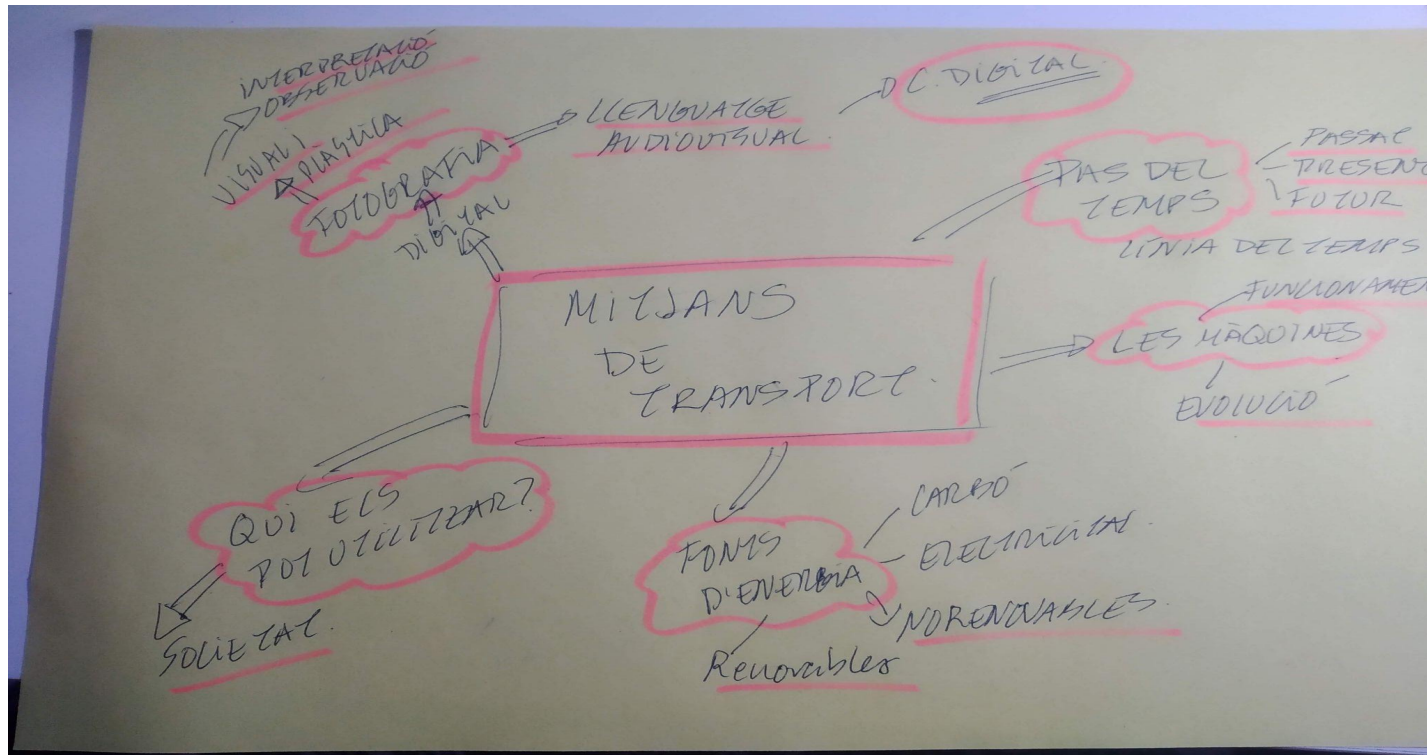 INTERPRETACIÓ
OBSERVACIÓ
VISUAL I
PLÀSTICA
FOTOGRAFIA
DIGITAL
LLENGUATGE
AUDIOVISUAL
C. DIGITAL
PAS DEL
TEMPS
PASSAT
PRESENT
FUTUR
LÍNIA DEL TEMPS
MITJANS
DE
TRANSPORT.
FUNCIONAMEN
LES MÀQUINES
EVOLUCIÓ
QUI ELS
POT UTILITZAR?
SOCIETAT.
FONTS
D'ENERGIA
CARBÓ
ELECTRICITAT.
NO RENOVABLES.
Renovables